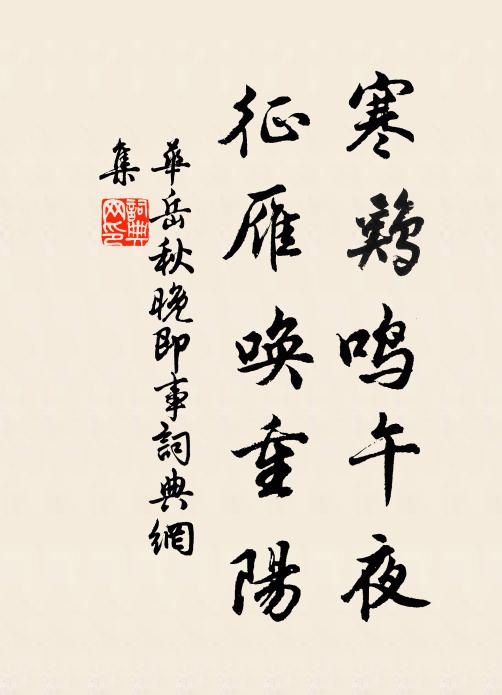 寒鷄鳴午夜
征雁喚重陽
華岳秋晚即事詞典網
集
詞典
网印